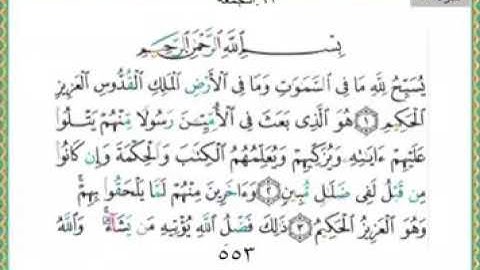 بِسْمِ ٱللَّهِ ٱلرَّحْمَٰنِ ٱلرَّحِيمِ
يُسَبِّحُ لِلَّهِ مَا فِى ٱلسَّمَٰوَٰتِ وَمَا فِى ٱلْأَرْضِ ٱلْمَلِكِ ٱلْقُدُّوسِ ٱلْعَزِيزِ
ٱلْحَكِيمِ ١ هُوَ ٱلَّذِى بَعَثَ فِى ٱلْأُمِّيِّـۧنَ رَسُولًا مِّنْهُمْ يَتْلُوا۟
عَلَيْهِمْ ءَايَٰتِهِۦ وَيُزَكِّيهِمْ وَيُعَلِّمُهُمُ ٱلْكِتَٰبَ وَٱلْحِكْمَةَ وَإِن كَانُوا۟
مِن قَبْلُ لَفِى ضَلَٰلٍ مُّبِينٍ ٢ وَءَاخَرِينَ مِنْهُمْ لَمَّا يَلْحَقُوا۟ بِهِمْ ۚ
وَهُوَ ٱلْعَزِيزُ ٱلْحَكِيمُ ٣ ذَٰلِكَ فَضْلُ ٱللَّهِ يُؤْتِيهِ مَن يَشَآءُ ۚ وَٱللَّهُ
٥٥٣